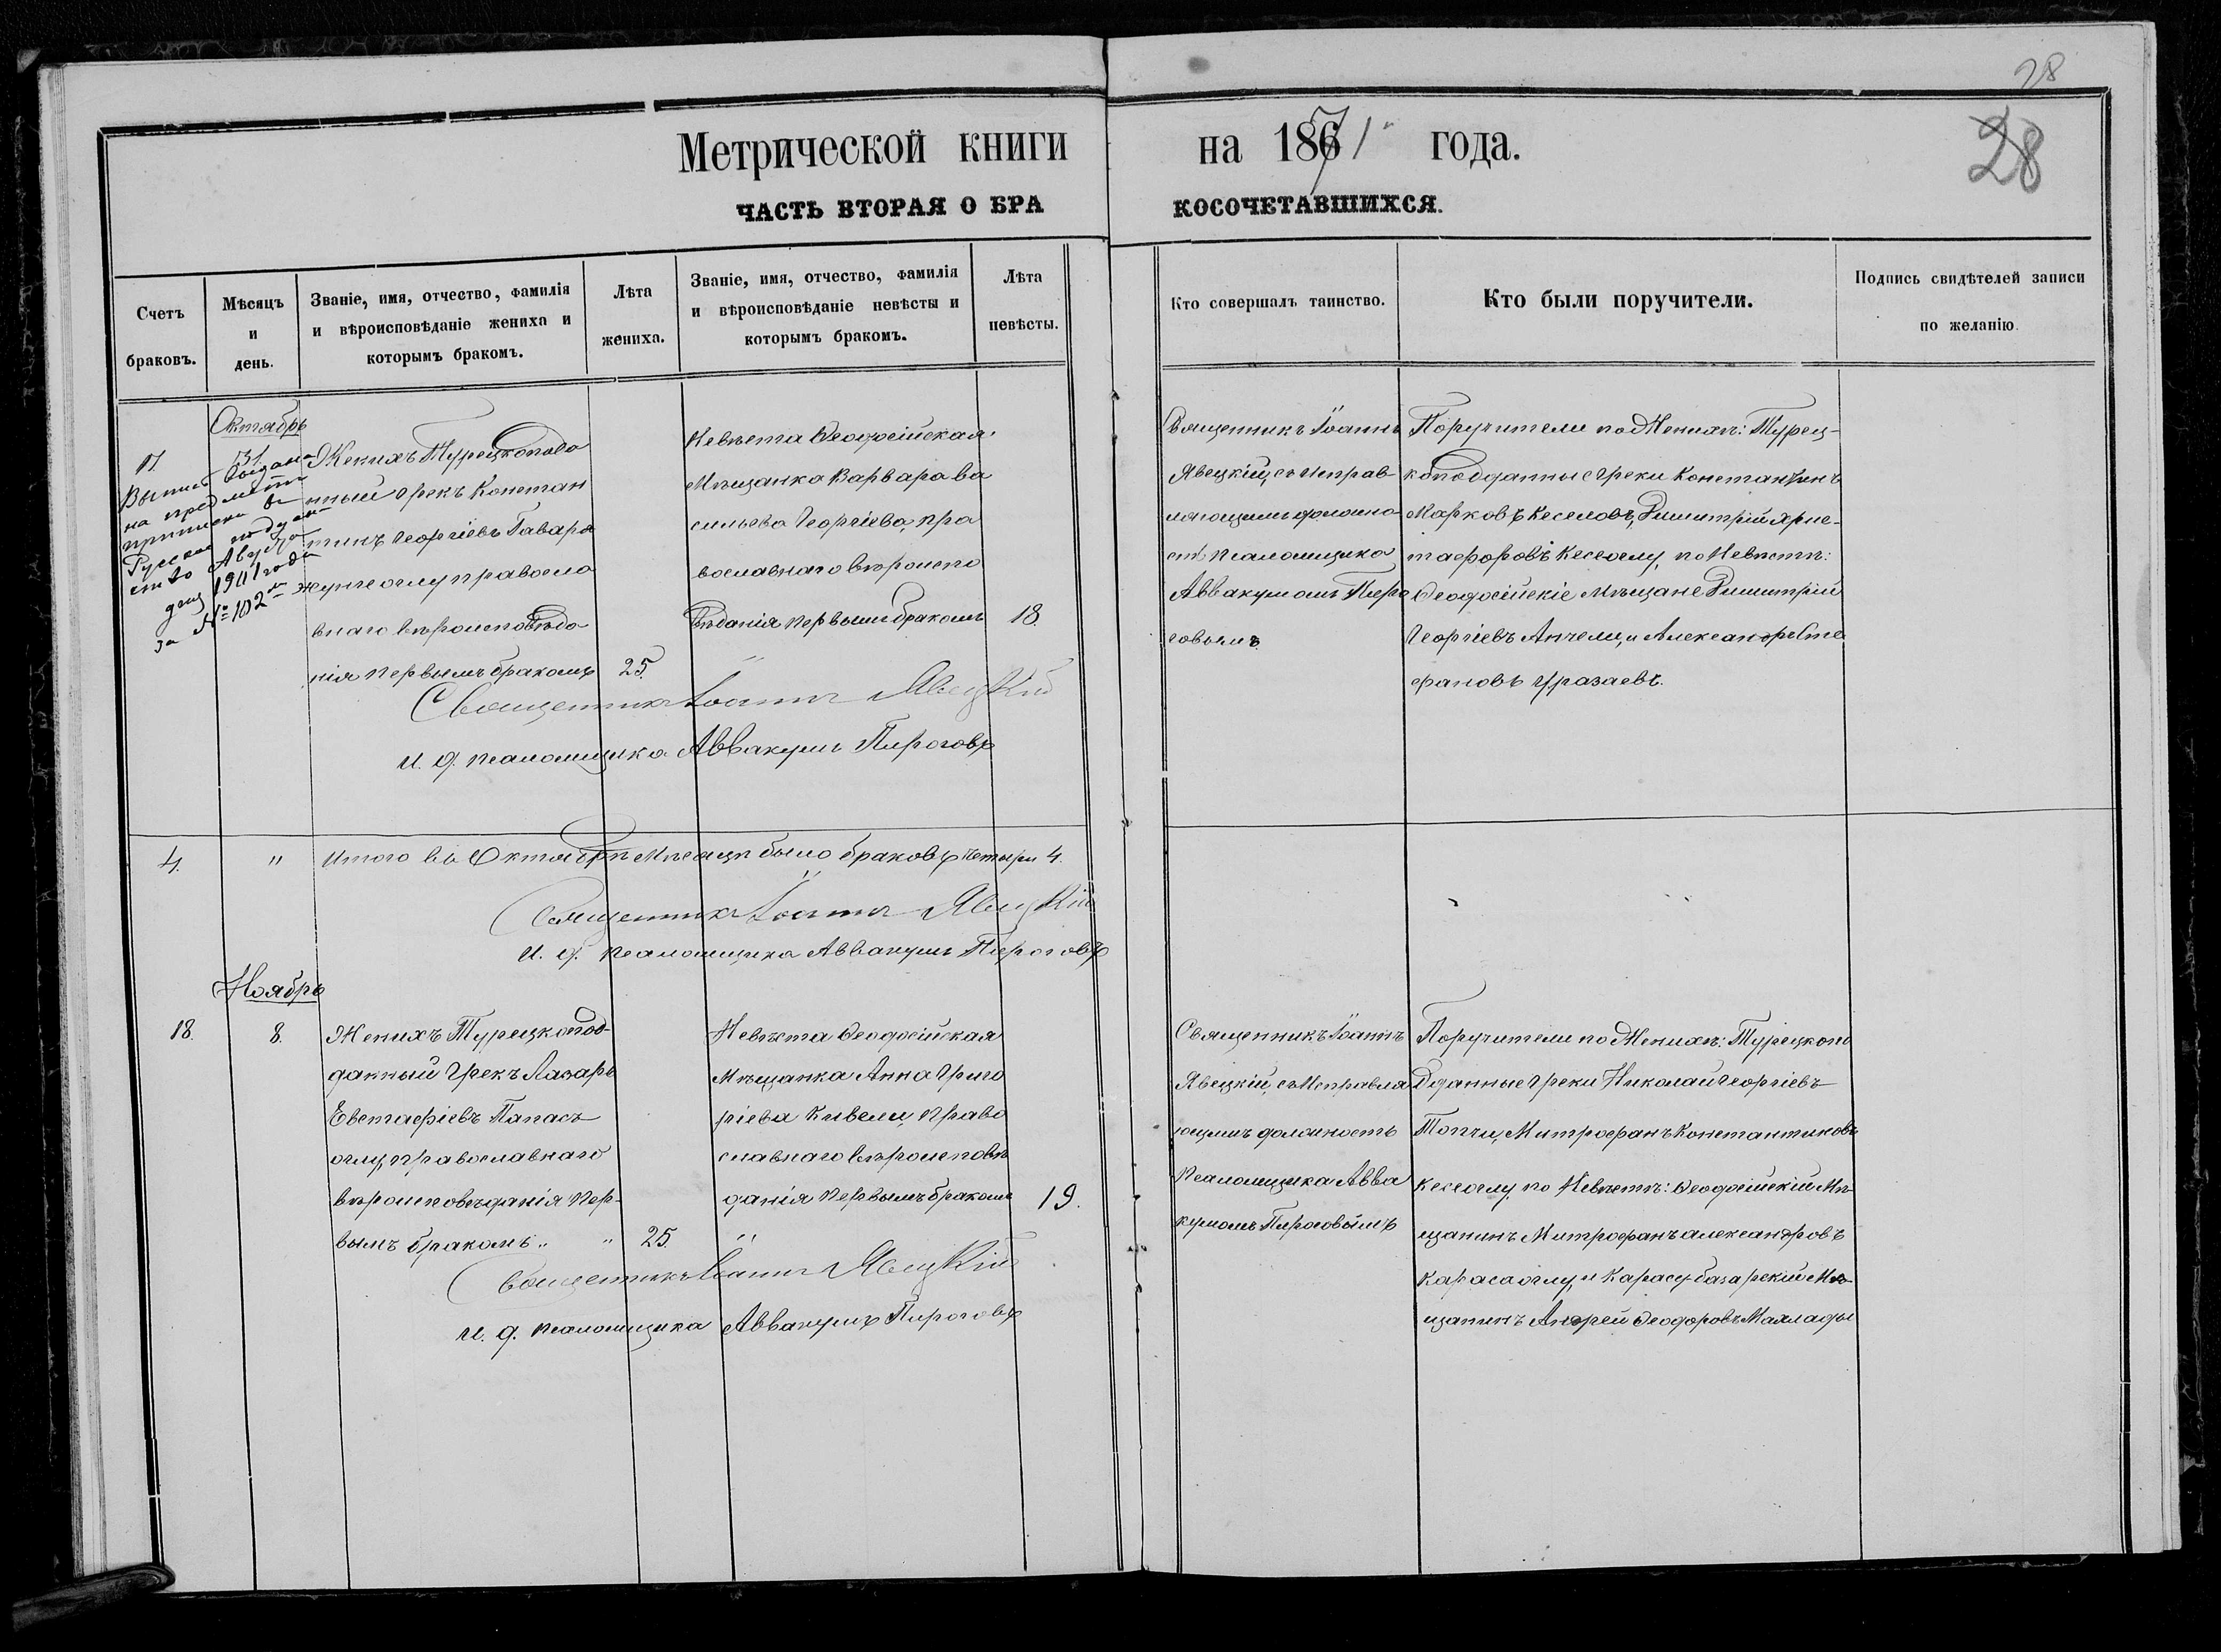 28
28
Метрической книги на 1871 года.
ЧАСТЬ ВТОРАЯ О БРАКОСОЧЕТАВШИХСЯ.
Счетъ браковъ.
Мѣсяцъ и день.
Званіе, имя, отчество, фамилія
и вѣроисповѣданіе жениха и
которымъ бракомъ.
Лѣта
жениха.
Званіе, имя, отчество, фамилія
и вѣроисповѣданіе невѣсты и
которымъ бракомъ.
Лѣта
невѣсты.
Кто совершалъ таинство.
Кто были поручители.
Подпись свидѣтелей записи
по желанію.
Октябрь
17
31.
Выпись выдана
на предметъ
приписки въ
Русское поддан
ство Августа
дня 1901 года
за № 102
Женихъ Турецкоподда
нный Грекъ Констан
тинъ Георгіевъ Гавара
жунгоглу правосла
внаго вѣроисповѣда
нія первымъ бракомъ
25.
Невѣста Ѳеодосійская
Мѣщанка Варвара Ва
сильева Георгіева, пра
вославнаго вѣроиспо
вѣданія первымъ бракомъ
18.
Священникъ Іоаннъ
Явецкій, съ исправ-
ляющимъ должно-
сть псаломщика
Аввакумомъ Пиро
говымъ
Поручители по Женихѣ: Турец-
коподданные Греки Константинъ
Марковъ Кеселовъ, Димитрій Хрис-
тафоровъ Кесеоглу, по Невѣстѣ:
Ѳеодосійскіе Мѣщане Димитрій
Георгіевъ Анчели, и Александръ Сте
фановъ Уразаевъ.
Священникъ Іоаннъ Явецкій
И. д. псаломщика Аввакумъ Пироговъ
4. " Итого въ Октябрѣ Мѣсяцѣ было браковъ четыри 4.
Священникъ Іоаннъ Явецкій
И. д. псаломщика Аввакумъ Пироговъ
Ноябрь
18.
8.
Женихъ Турецкопод-
данный Грекъ Лазарь
Евстафіевъ Папасъ
оглу, православнаго
вѣроисповѣданія пер-
вымъ бракомъ " "
25.
Невѣста Ѳеодосійская
Мѣщанка Анна Григо
ріева Кивели, право
славнаго вѣроисповѣ
данія первымъ бракомъ
19.
Священникъ Іоаннъ
Явецкій, съ исправля
ющимъ должность
псаломщика Авва
кумомъ Пироговымъ
Поручители по Женихѣ: Турецкопо
дданные Греки Николай Георгіевъ
Топчи, Митрофанъ Константиновъ
Кесеоглу, по Невѣстѣ: Ѳеодосійскій Мѣ-
щанинъ Митрофанъ Александровъ
Карасаоглу, и Карасу-базарскій Мѣ-
щанинъ Андрей Ѳеодоровъ Маллады
Священникъ Іоаннъ Явецкій
И. д. псаломщика Аввакумъ Пироговъ